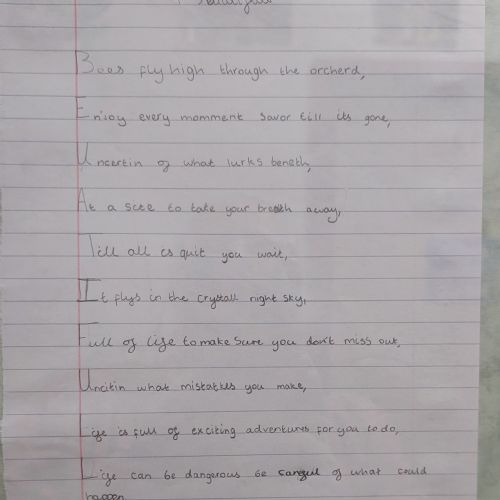 Bees fly high through the orcherd,
Enjoy every momment savor till its gone,
Uncertin of what lurks beneth,
At a scee to take your breath away,
Till all is quit you wait,
It flys in the crystall night sky,
Full of life to make sure you don't miss out,
Uncitin what mistatkes you make,
Life is full of exciting adventures for you to do,
Life can be dangerous be careful of what could
happen